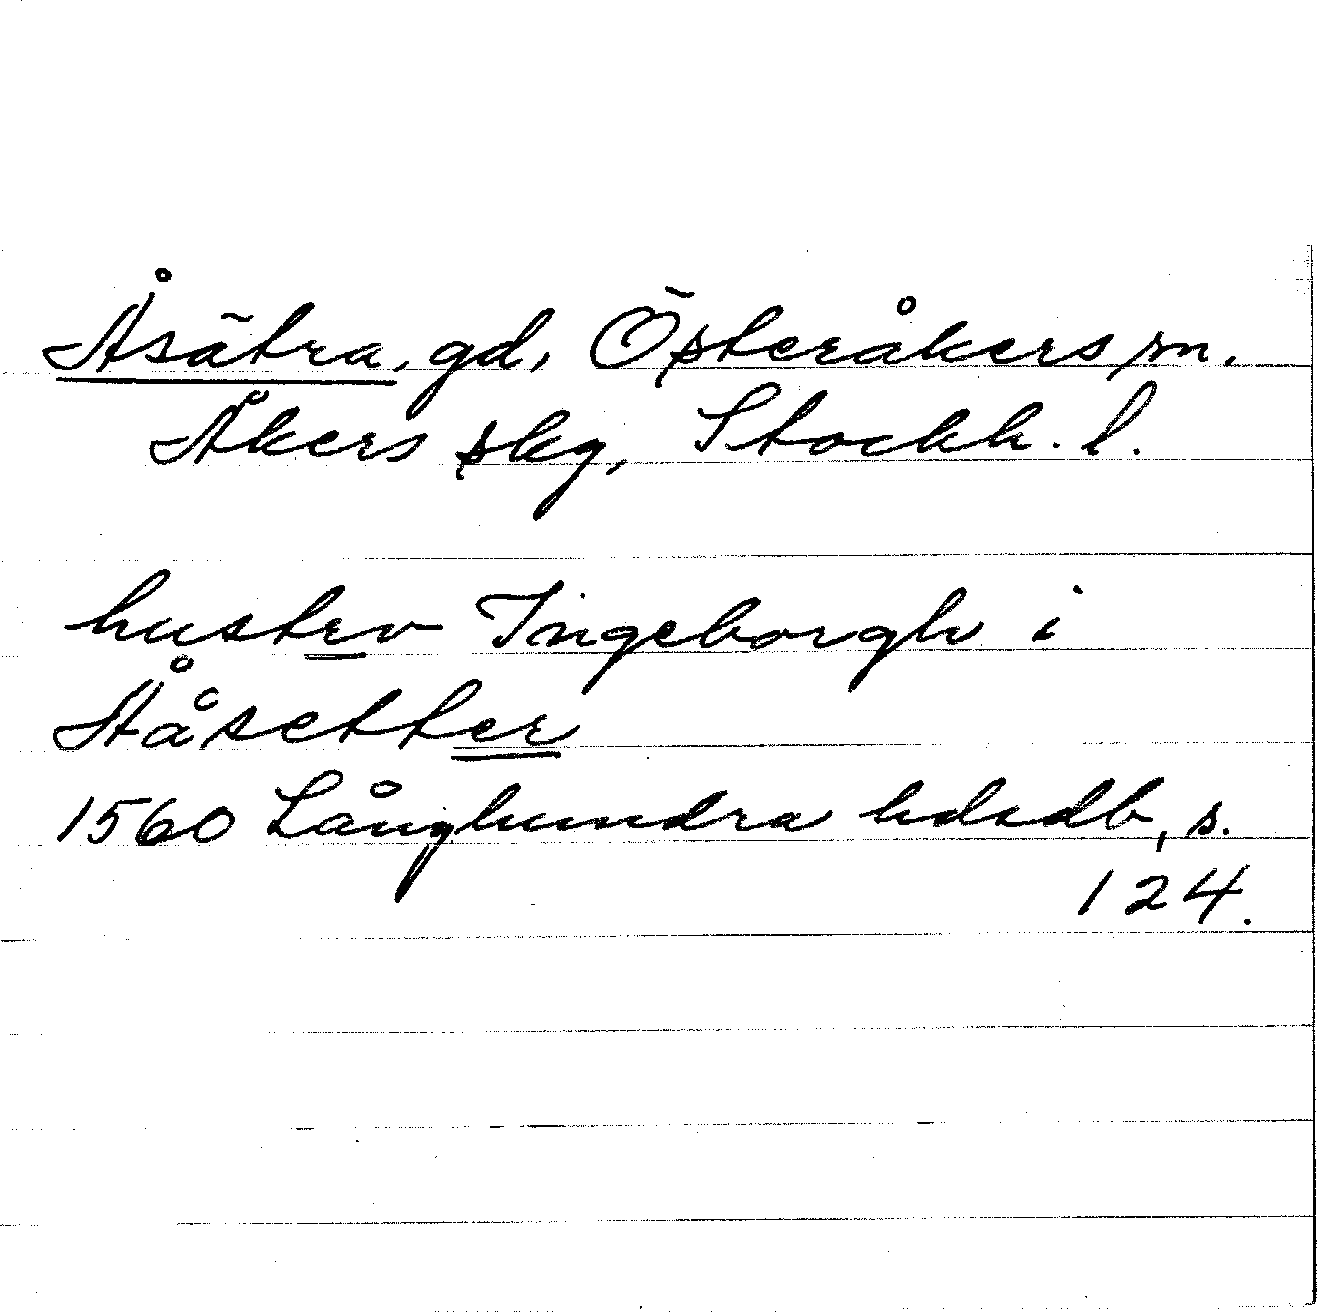 Åsätra, gd, Österåkers sn.
Åkers skg, Stockh. l.
hustrv Ingeborgh i
Ååsetter
1560 Långhundra hdsdb, s.
124.